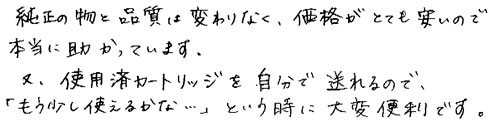 純正の物と品質は変わりなく、価格がとても安いので
本当に助かっています。
又、使用済カートリッジを自分で送れるので、
「もう少し使えるかな…」という時に大変便利です。